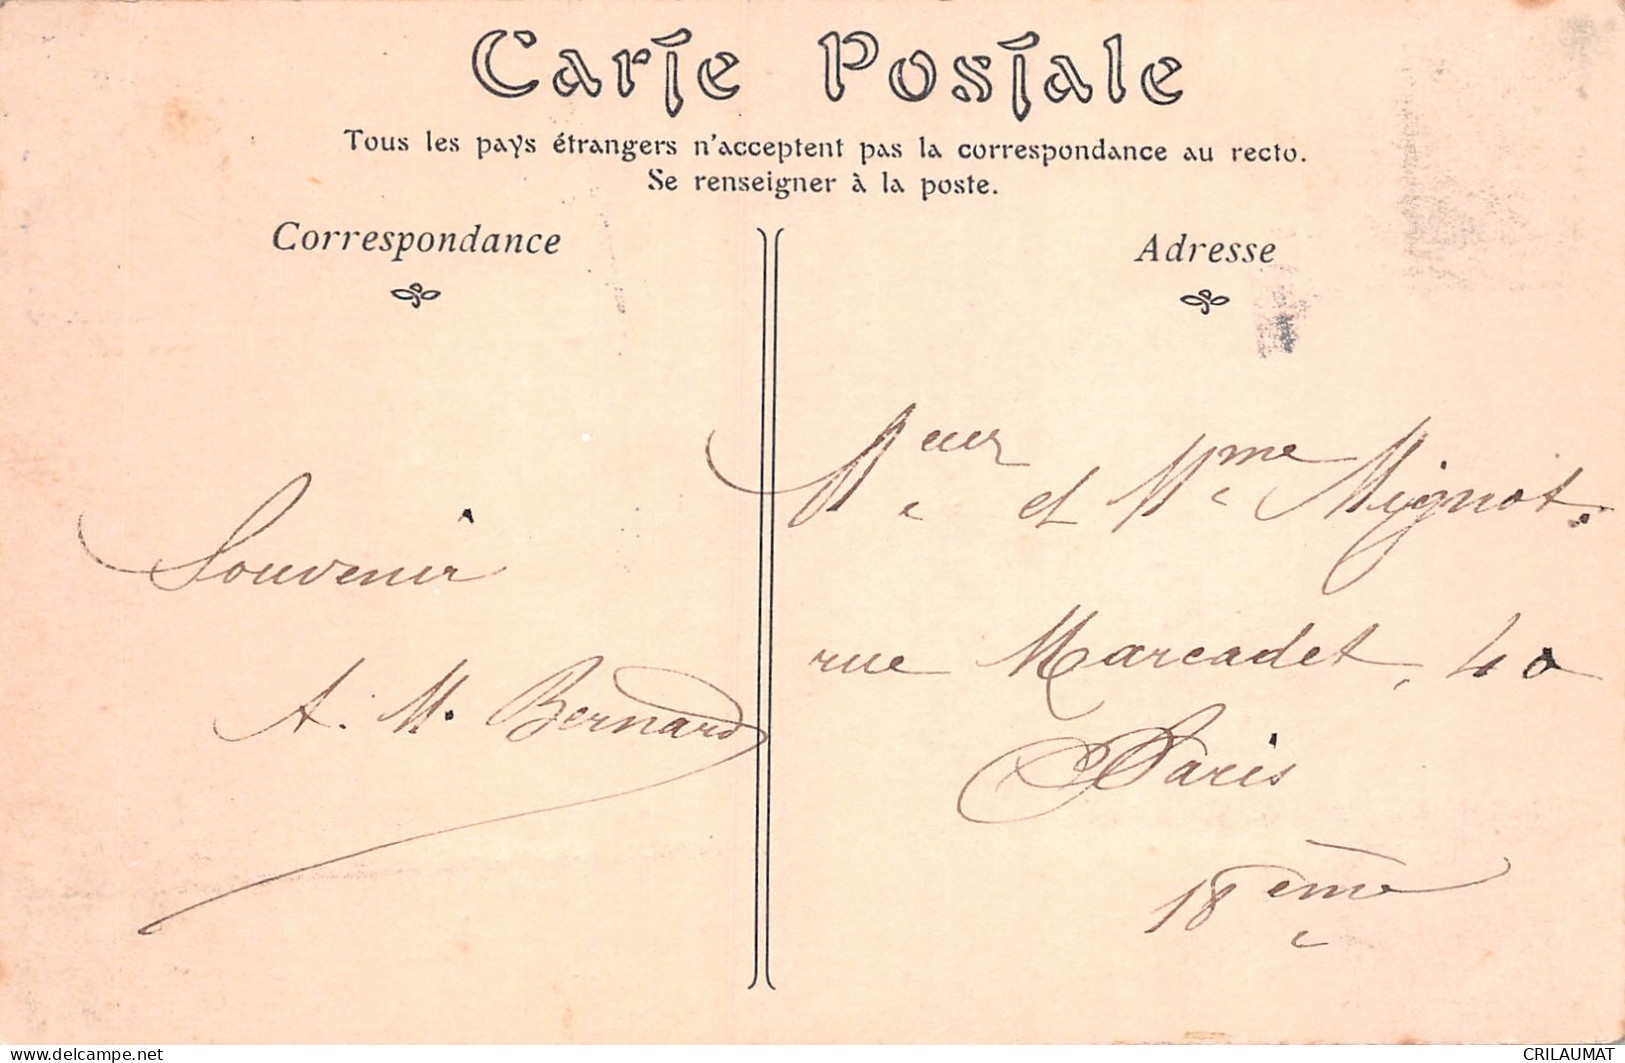 Carte Postale
Tous les pays étrangers n'acceptent pas la correspondance au recto.
Se renseigner à la poste.
Correspondance
Souvenir
A. M. Bernard
Adresse
Meur et Mme Mignot.
rue Marcadet, 40
Paris
18ème
www.delcampe.net
CRILAUMAT